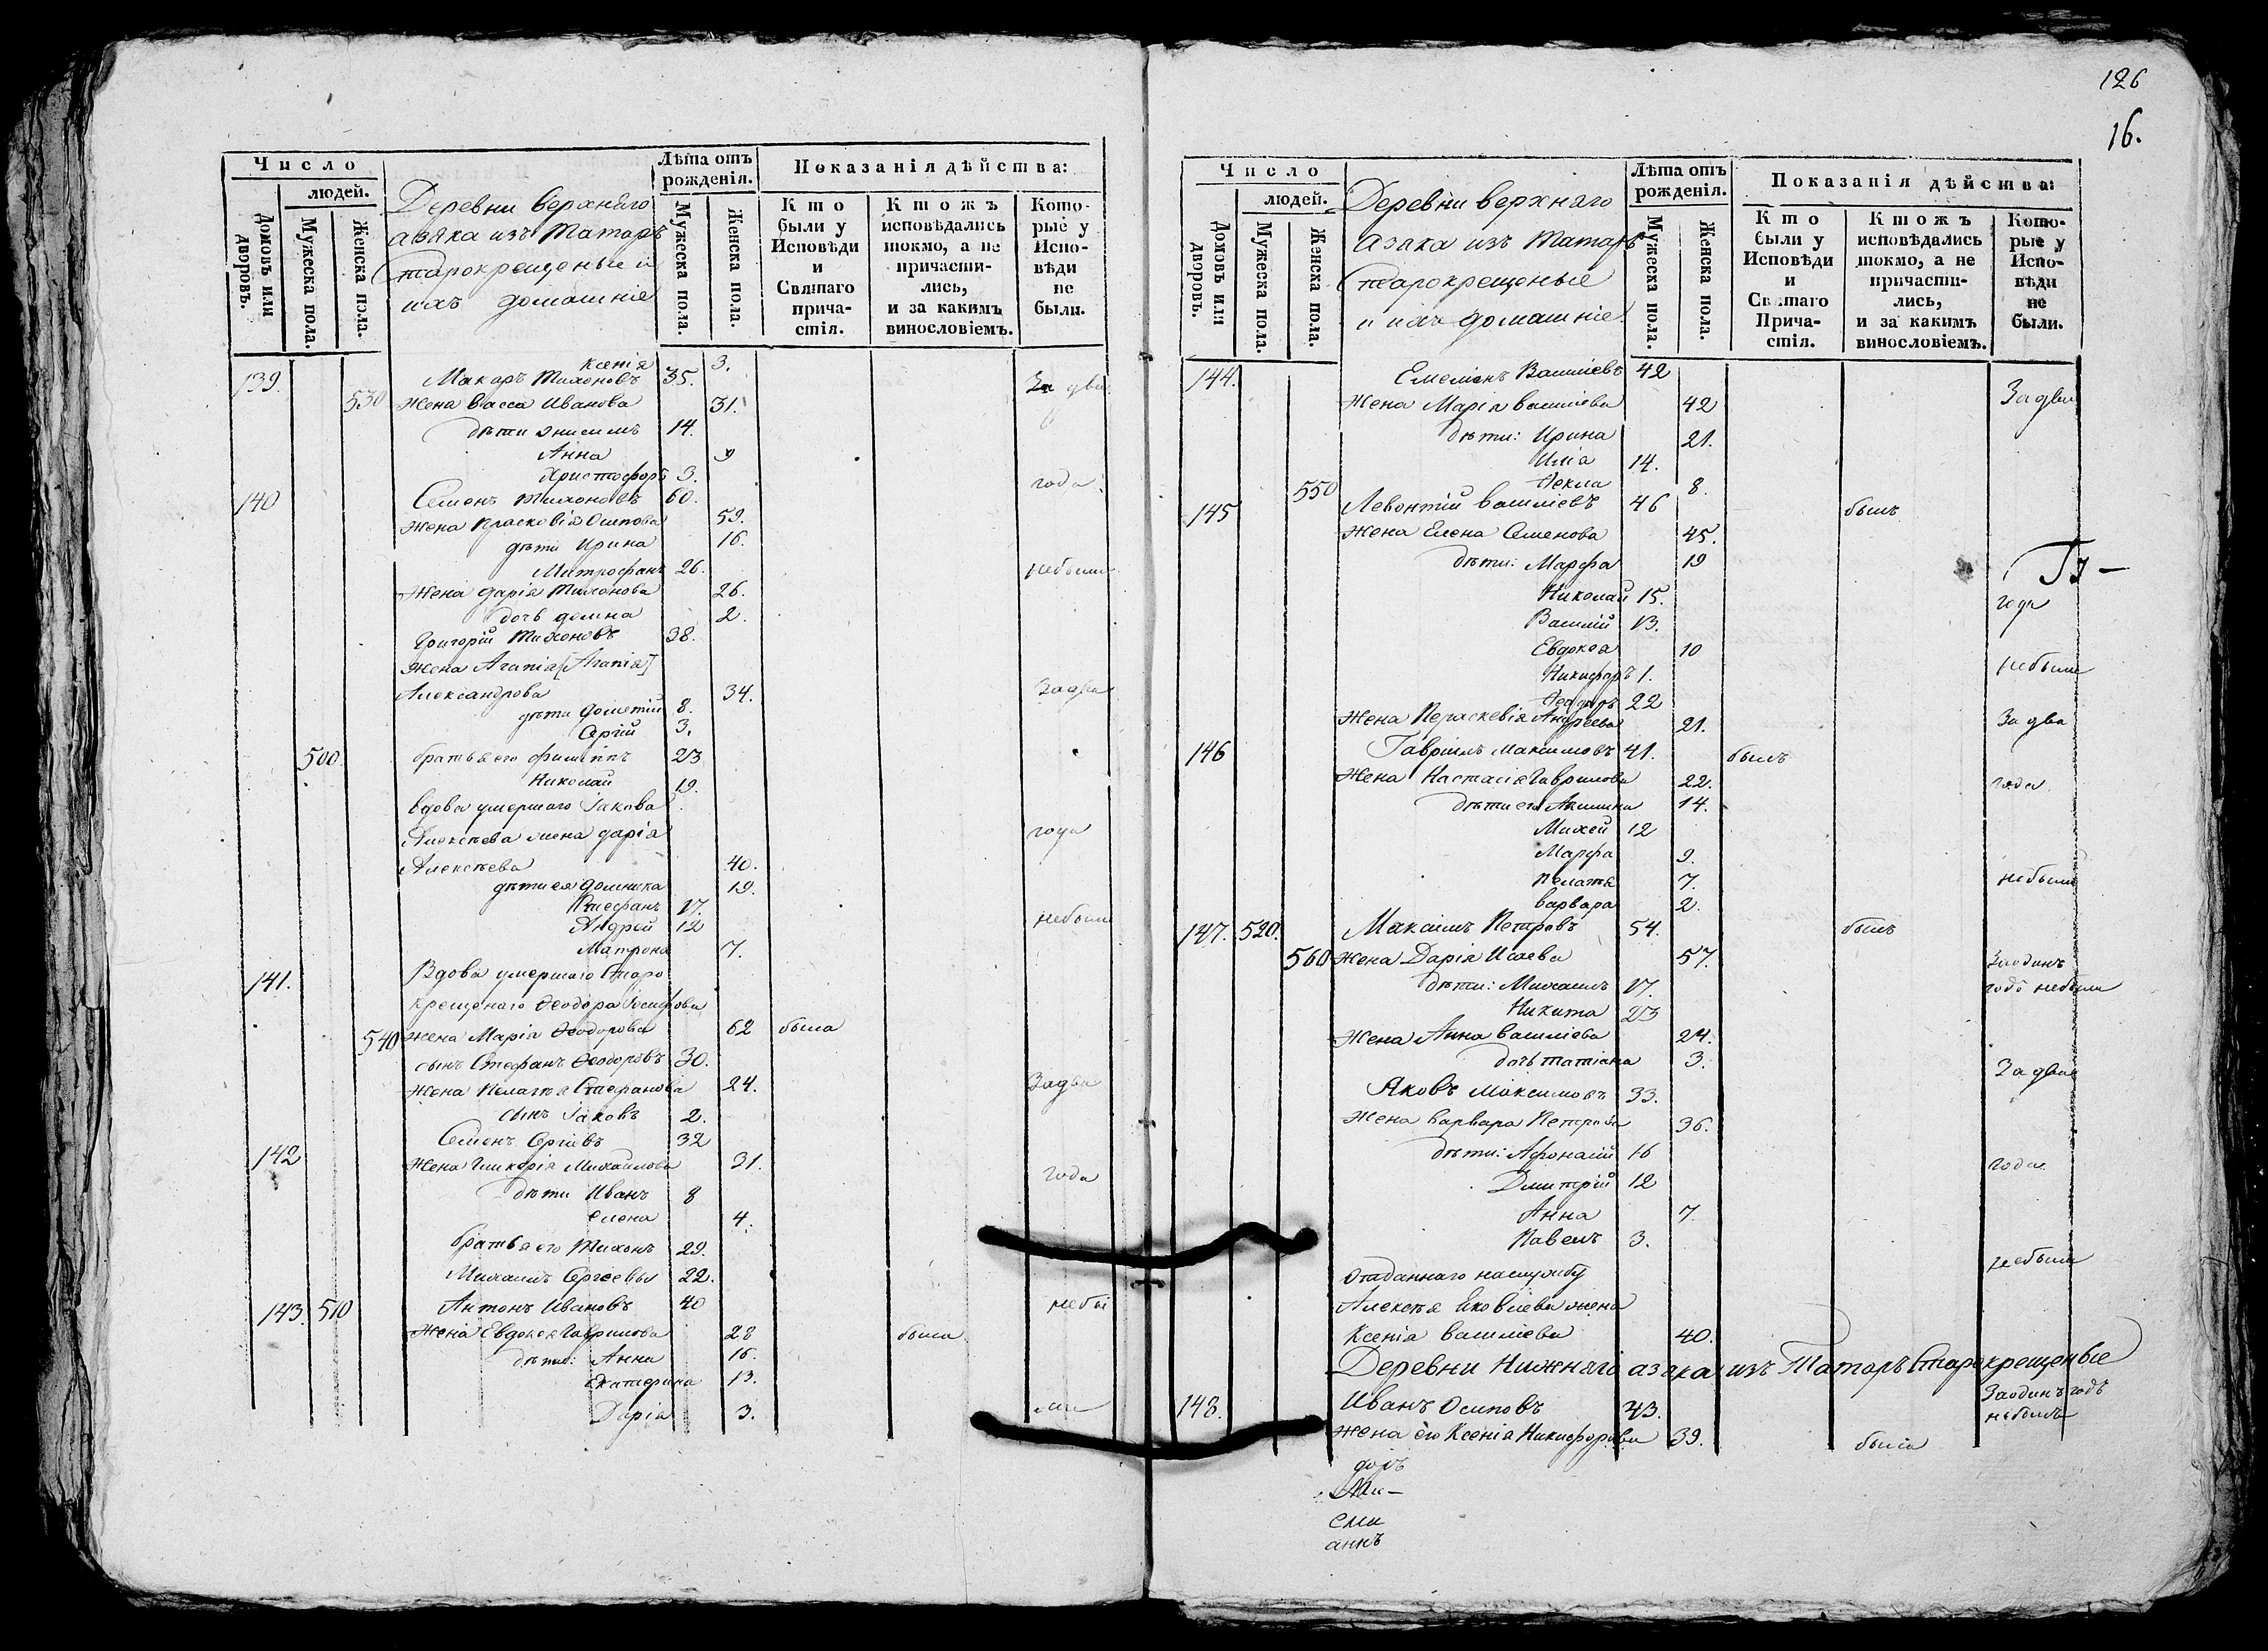 Число
людей.
Домовъ или дворовъ.
Мужеска пола.
Женска пола.
Деревни верхняго
азяка изъ Татаръ
старокрещеные и
ихъ домашніе
Лѣта отъ рожденія.
Мужеска пола.
Женска пола.
Показанія дѣйства:
Кто были у Исповѣди и Святаго причастія.
Ктожъ исповѣдались токмо, а не причастились, и за какимъ винословіемъ.
Которые у Исповѣди не были.
Ксенія 3.
139. Макаръ Тихоновъ 35. За два
530 Жена Васса Иванова 31.
дѣти Онисимъ 14.
Анна 9
Христофоръ 3. года
140 Семенъ Тихоновъ 60.
Жена Прасковія Осипова 59.
дѣти Ирина 16.
Митрофанъ 26. небыли
Жена Дарія Тихонова 26.
дочь Домна 2.
Григорій Тихоновъ 38.
Жена Агапія [Агапія]
Александрова 34. За два
дѣти Дометій 8.
Сергій 3.
500. братья его Филиппъ 23
Николай 19.
вдова умершаго Іакова
Алексѣева жена Дарія года
Алексѣева 40.
дѣти ея Домника 19.
Стефанъ 17.
Андрей 12 небыли
Матрона 7.
141. Вдова умершаго Старо
крещенаго Ѳеодора Іосифова
540 жена Марія Ѳеодорова 62 была
сынъ Стефанъ Ѳеодоровъ 30.
Жена Пелагія Стефанова 24. За два
сынъ Іаковъ 2.
142 Семенъ Сергіевъ 32
Жена Гликерія Михаилова 31. года
дѣти Иванъ 8
Елена 4.
братья его Тихонъ 29.
Михаилъ Сергеевы 22.
143. 510 Антонъ Ивановъ 40 небы
Жена Евдокея Гаврилова 28 была
дѣти: Анна 16.
Екатерина 13.
Дарія 3. ли
126
16.
Число
людей.
Домовъ или дворовъ.
Мужеска пола.
Женска пола.
Деревни верхняго
азяка изъ Татаръ
Старокрещеные
и ихъ домашніе.
Лѣта отъ рожденія.
Мужеска пола.
Женска пола.
Показанія дѣйства:
Кто были у Исповѣди и Святаго Причастія.
Ктожъ исповѣдались токмо, а не причастились, и за какимъ винословіемъ.
Которые у Исповѣди не были.
144. Емеліянъ Василіевъ 42
Жена Марія Василіева 42 За два
дѣти: Ирина 21.
Илія 14.
550 Ѳекла 8.
145 Левонтій Василіевъ 46 былъ
Жена Елена Семенова 45.
дѣти: Марфа 19
Николай 15. года
Василій 13.
Евдокея 10
Никифоръ 1. небыли
Ѳеодоръ 22
Жена Пераскевія Андреева 21. За два
146 Гавріилъ Максимовъ 41. былъ
Жена Настасія Гаврилова 22. года
дѣти его Акилина 14.
Михей 12
Марфа 9.
Пелагія 7. небыли
Варвара 2.
147. 520. Максимъ Петровъ 54. былъ
560 Жена Дарія Исаева 57. За одинъ
дѣти: Михаилъ 17. годъ небыли
Никита 23
Жена Анна Василіева 24.
дочь Татіана 3. За два
Яковъ Максимовъ 33.
Жена Варвара Петрова 36.
дѣти: Афонасій 16 года
Дмитрій 12
Анна 7
Павелъ 3.
Отаданнаго на службу небыли
Алексѣя Яковлева жена
Ксенія Василіева 40.
Деревни Нижняго азяка изъ Татаръ Старокрещеные
148. Иванъ Осиповъ 43. За одинъ годъ небылъ
Жена его Ксенія Никифорова 39. была
доръ
Ми-
сли
аннъ